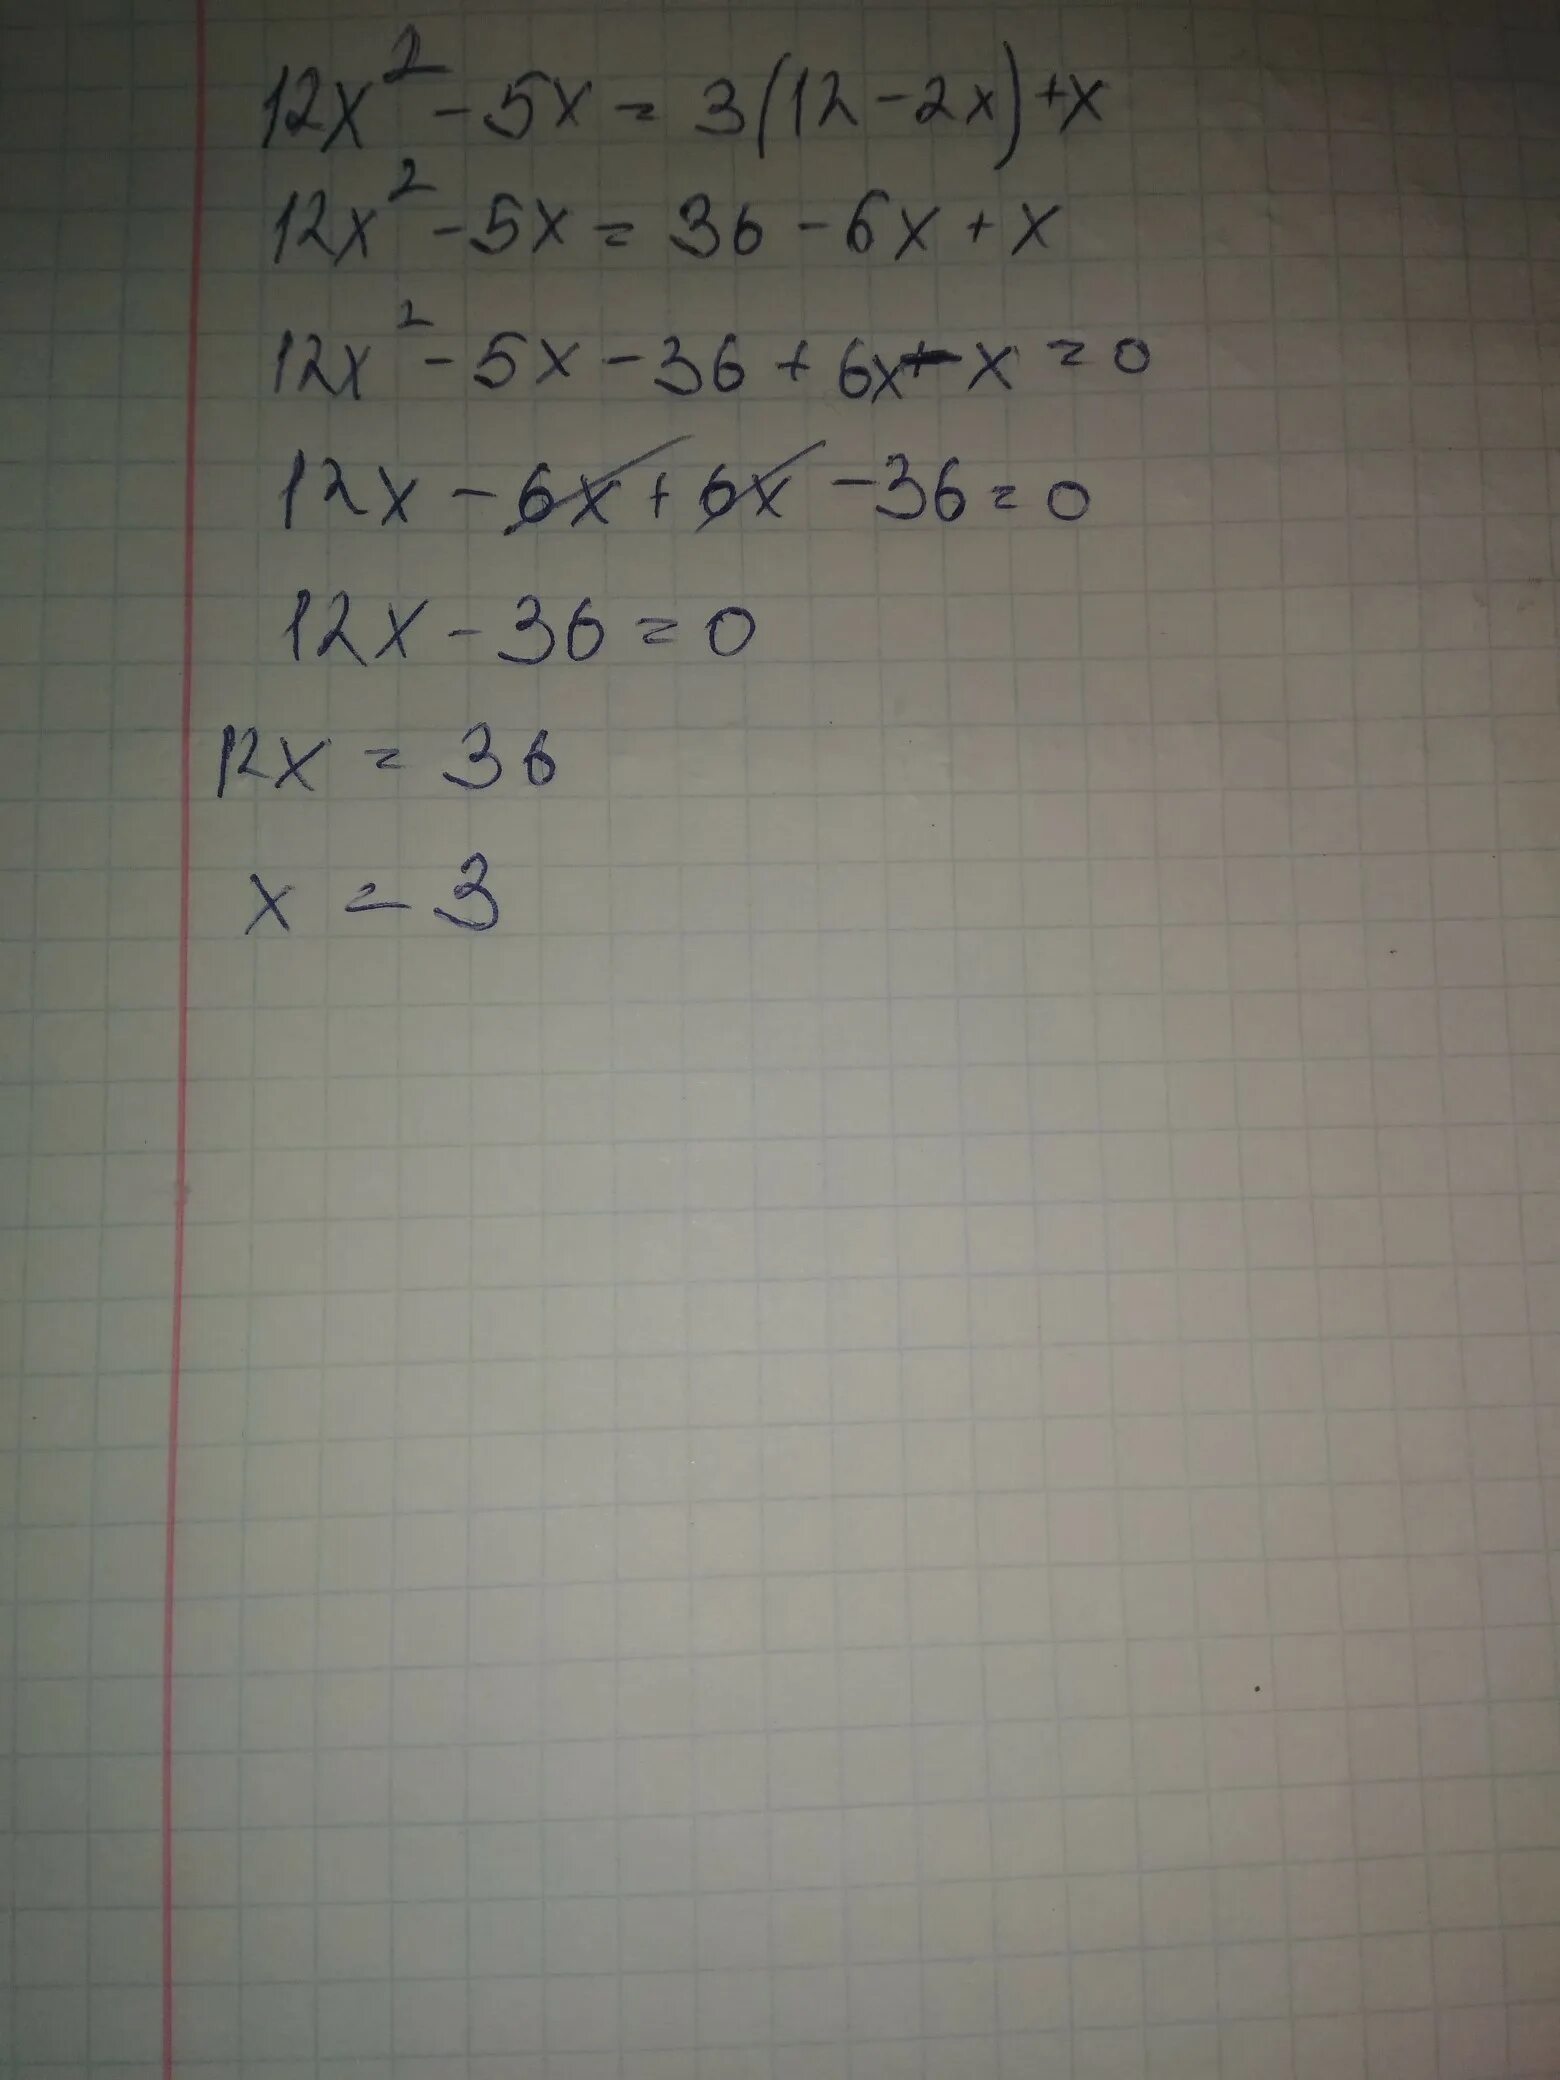 12x² - 5x = 3(12 - 2x) + x
12x² - 5x = 36 - 6x + x
12x² - 5x - 36 + 6x - x = 0
12x - 6x + 6x - 36 = 0
12x - 36 = 0
12x = 36
x = 3